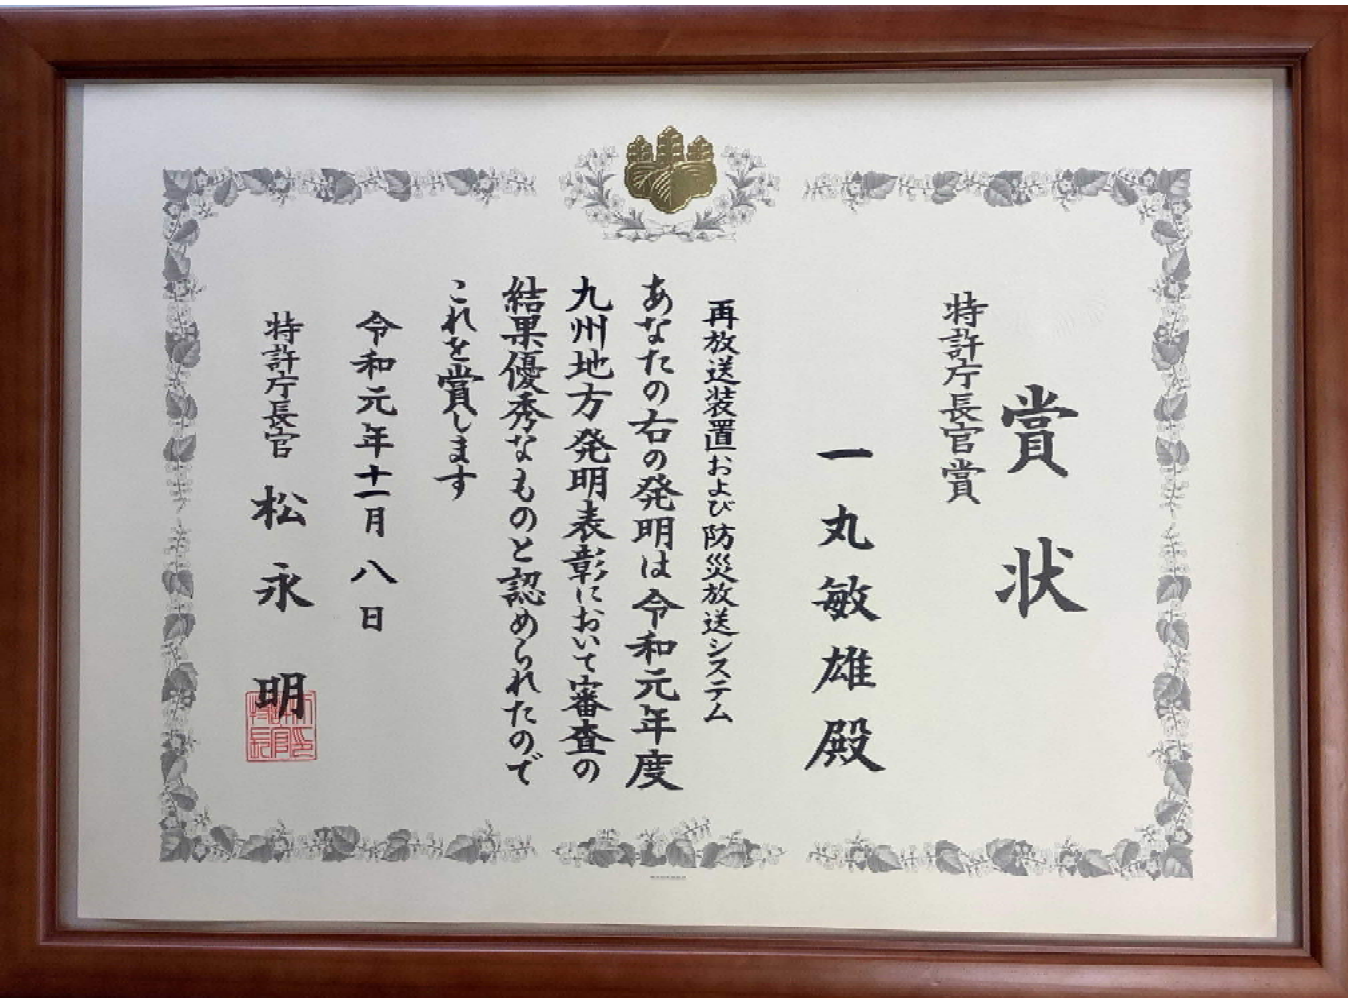 賞状
特許庁長官賞
一丸敏雄殿
再放送装置および防災放送システム
あなたの右の発明は令和元年度
九州地方発明表彰において審査の
結果優秀なものと認められたので
これを賞します
令和元年十一月八日
特許庁長官 松永明